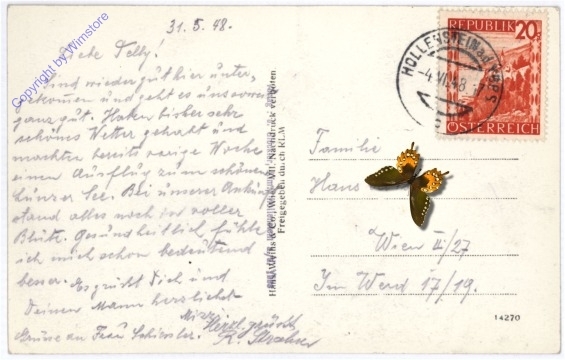 31.5.48.
Liebe Telly!
Sind wieder gut hier unter,
gekommen und geht es uns
ganz gut. Haben bisher sehr
schönes Wetter gehabt und
machten bereits vorige Woche
einen Ausflug zum schönen
Lunzer See. Bei unserer Ankunft
stand alles noch in voller
Blüte. Gesundheitlich fühle
ich mich schon bedeutend
besser. Es grüßt Dich und
Deinen Mann herzlichst
Mizzi
Grüsse an Frau
Herzl. grüßt
R.
Copyright by Wimstore
Nachdruck verboten
Freigegeben durch RLM
REPUBLIK 20g
ÖSTERREICH
HOLLENSTEIN
-4.VI.48
Familie
Hans
Wien II/27
Im Werd 17/19.
14270